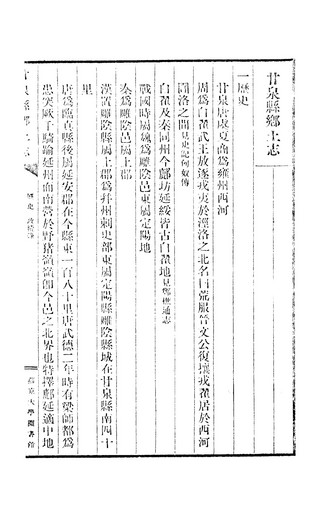 甘泉縣鄉土志
一歷史
甘泉唐虞夏商爲雍州西河
周爲白翟武王放逐戎夷於涇洛之北名曰荒服晉文公復攘戎翟居於西河
圁洛之間見史記匈奴傳
白翟及秦同州今鄜坊延綏皆古白翟地見鄭樵通志
戰國時屬魏爲雕陰邑東屬定陽地
秦爲雕陰邑屬上郡
漢置雕陰縣上郡爲幷州刺史部東屬定陽縣雕陰縣城在甘泉縣南四十
里
唐爲臨真縣後屬延安郡在今縣東一百八十里唐武德二年時有梁師都爲
患突厥千騎踰延州而南營於野豬嶺嶺卽今邑之北界也特擇鄜延適中地
甘泉縣鄉土志
歷史
燕京大學圖書館